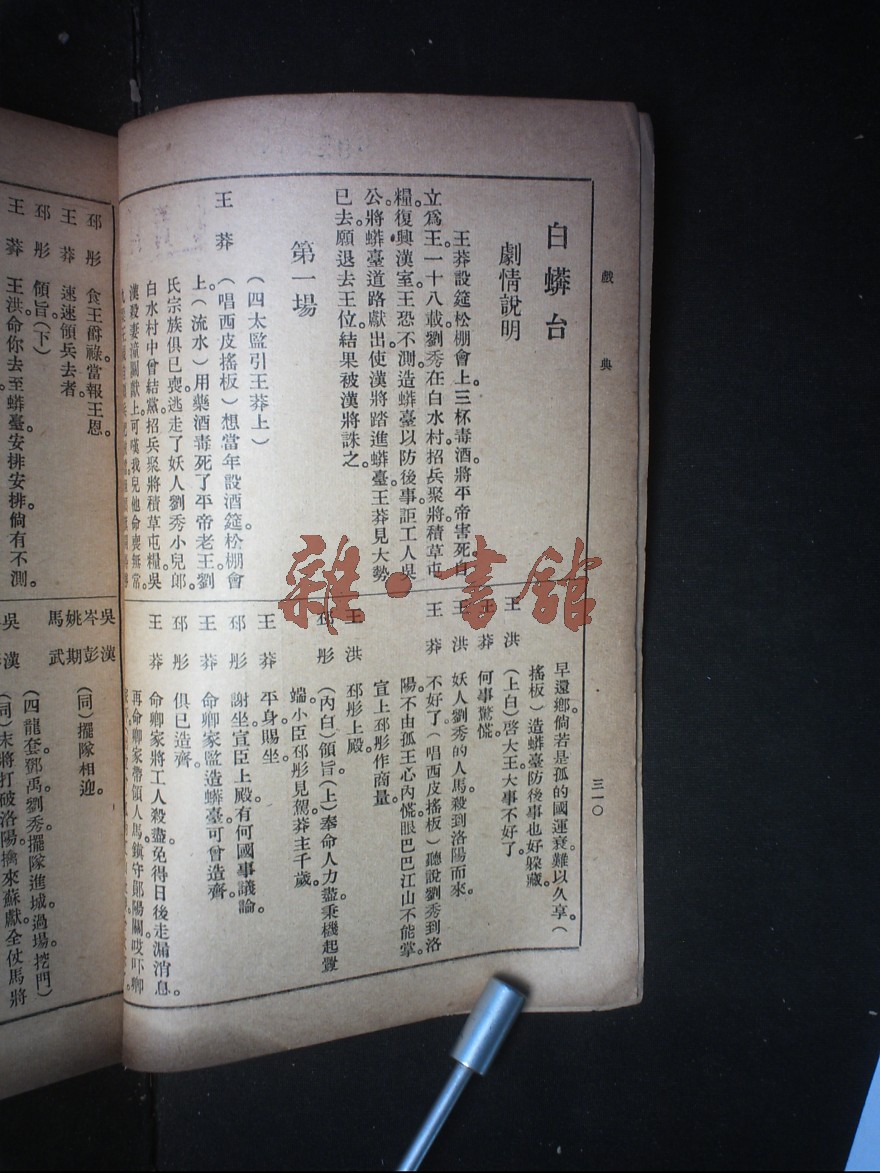 戲典
三一〇
白蟒台
劇情說明
王莽設筵松棚會上。三杯毒酒。將平帝害死。自
立爲王。一十八載。劉秀在白水村招兵聚將。積草屯
糧。復興漢室。王恐不測。造蟒臺以防後事。詎工人吳
公。將蟒臺道路獻出。使漢將踏進蟒臺。王莽見大勢
已去。願退去王位。結果被漢將誅之。
第一場
(四太監引王莽上)
王莽 (唱西皮搖板)想當年設酒筵松棚會
上。(流水)用藥酒毒死了平帝老王。劉
氏宗族俱已喪。逃走了妖人劉秀小兒郎。
白水村中曾結黨。招兵聚將積草屯糧。吳
漢殺妻潼關獻上。可嘆我兒他命喪無常。
早還鄉。倘若是孤的國運衰難以久享。(
搖板)造蟒臺防後事也好躲藏。
王洪 (上白)啓大王大事不好了。
王莽 何事驚慌。
王洪 妖人劉秀的人馬殺到洛陽而來。
王莽 不好了(唱西皮搖板)聽說劉秀到洛
陽。不由孤王心內慌。眼巴巴江山不能掌。
宣上邳彤作商量。
王洪 邳彤上殿。
邳彤 (內白)領旨(上)奉命人力盡。秉機起釁
端。小臣邳彤見駕。莽主千歲。
王莽 平身賜坐。
邳彤 謝坐。宣臣上殿有何國事議論。
王莽 命卿家監造蟒臺。可曾造齊。
邳彤 俱已造齊。
王莽 命卿家將工人殺盡。免得日後走漏消息。
再命卿家帶領人馬。鎮守郧陽關。哎吓卿
邳彤 食王爵祿。當報王恩。
王莽 速速領兵去者。
邳彤 領旨(下)
王莽 王洪命你去至蟒臺。安排安排。倘有不測。
吳漢
岑彭
姚期
馬武
(同)擺隊相迎。
(四龍套鄧禹劉秀擺隊進城過場挖門)
吳漢 (同)末將打破洛陽。擒來蘇獻。全仗馬將
雜·書館